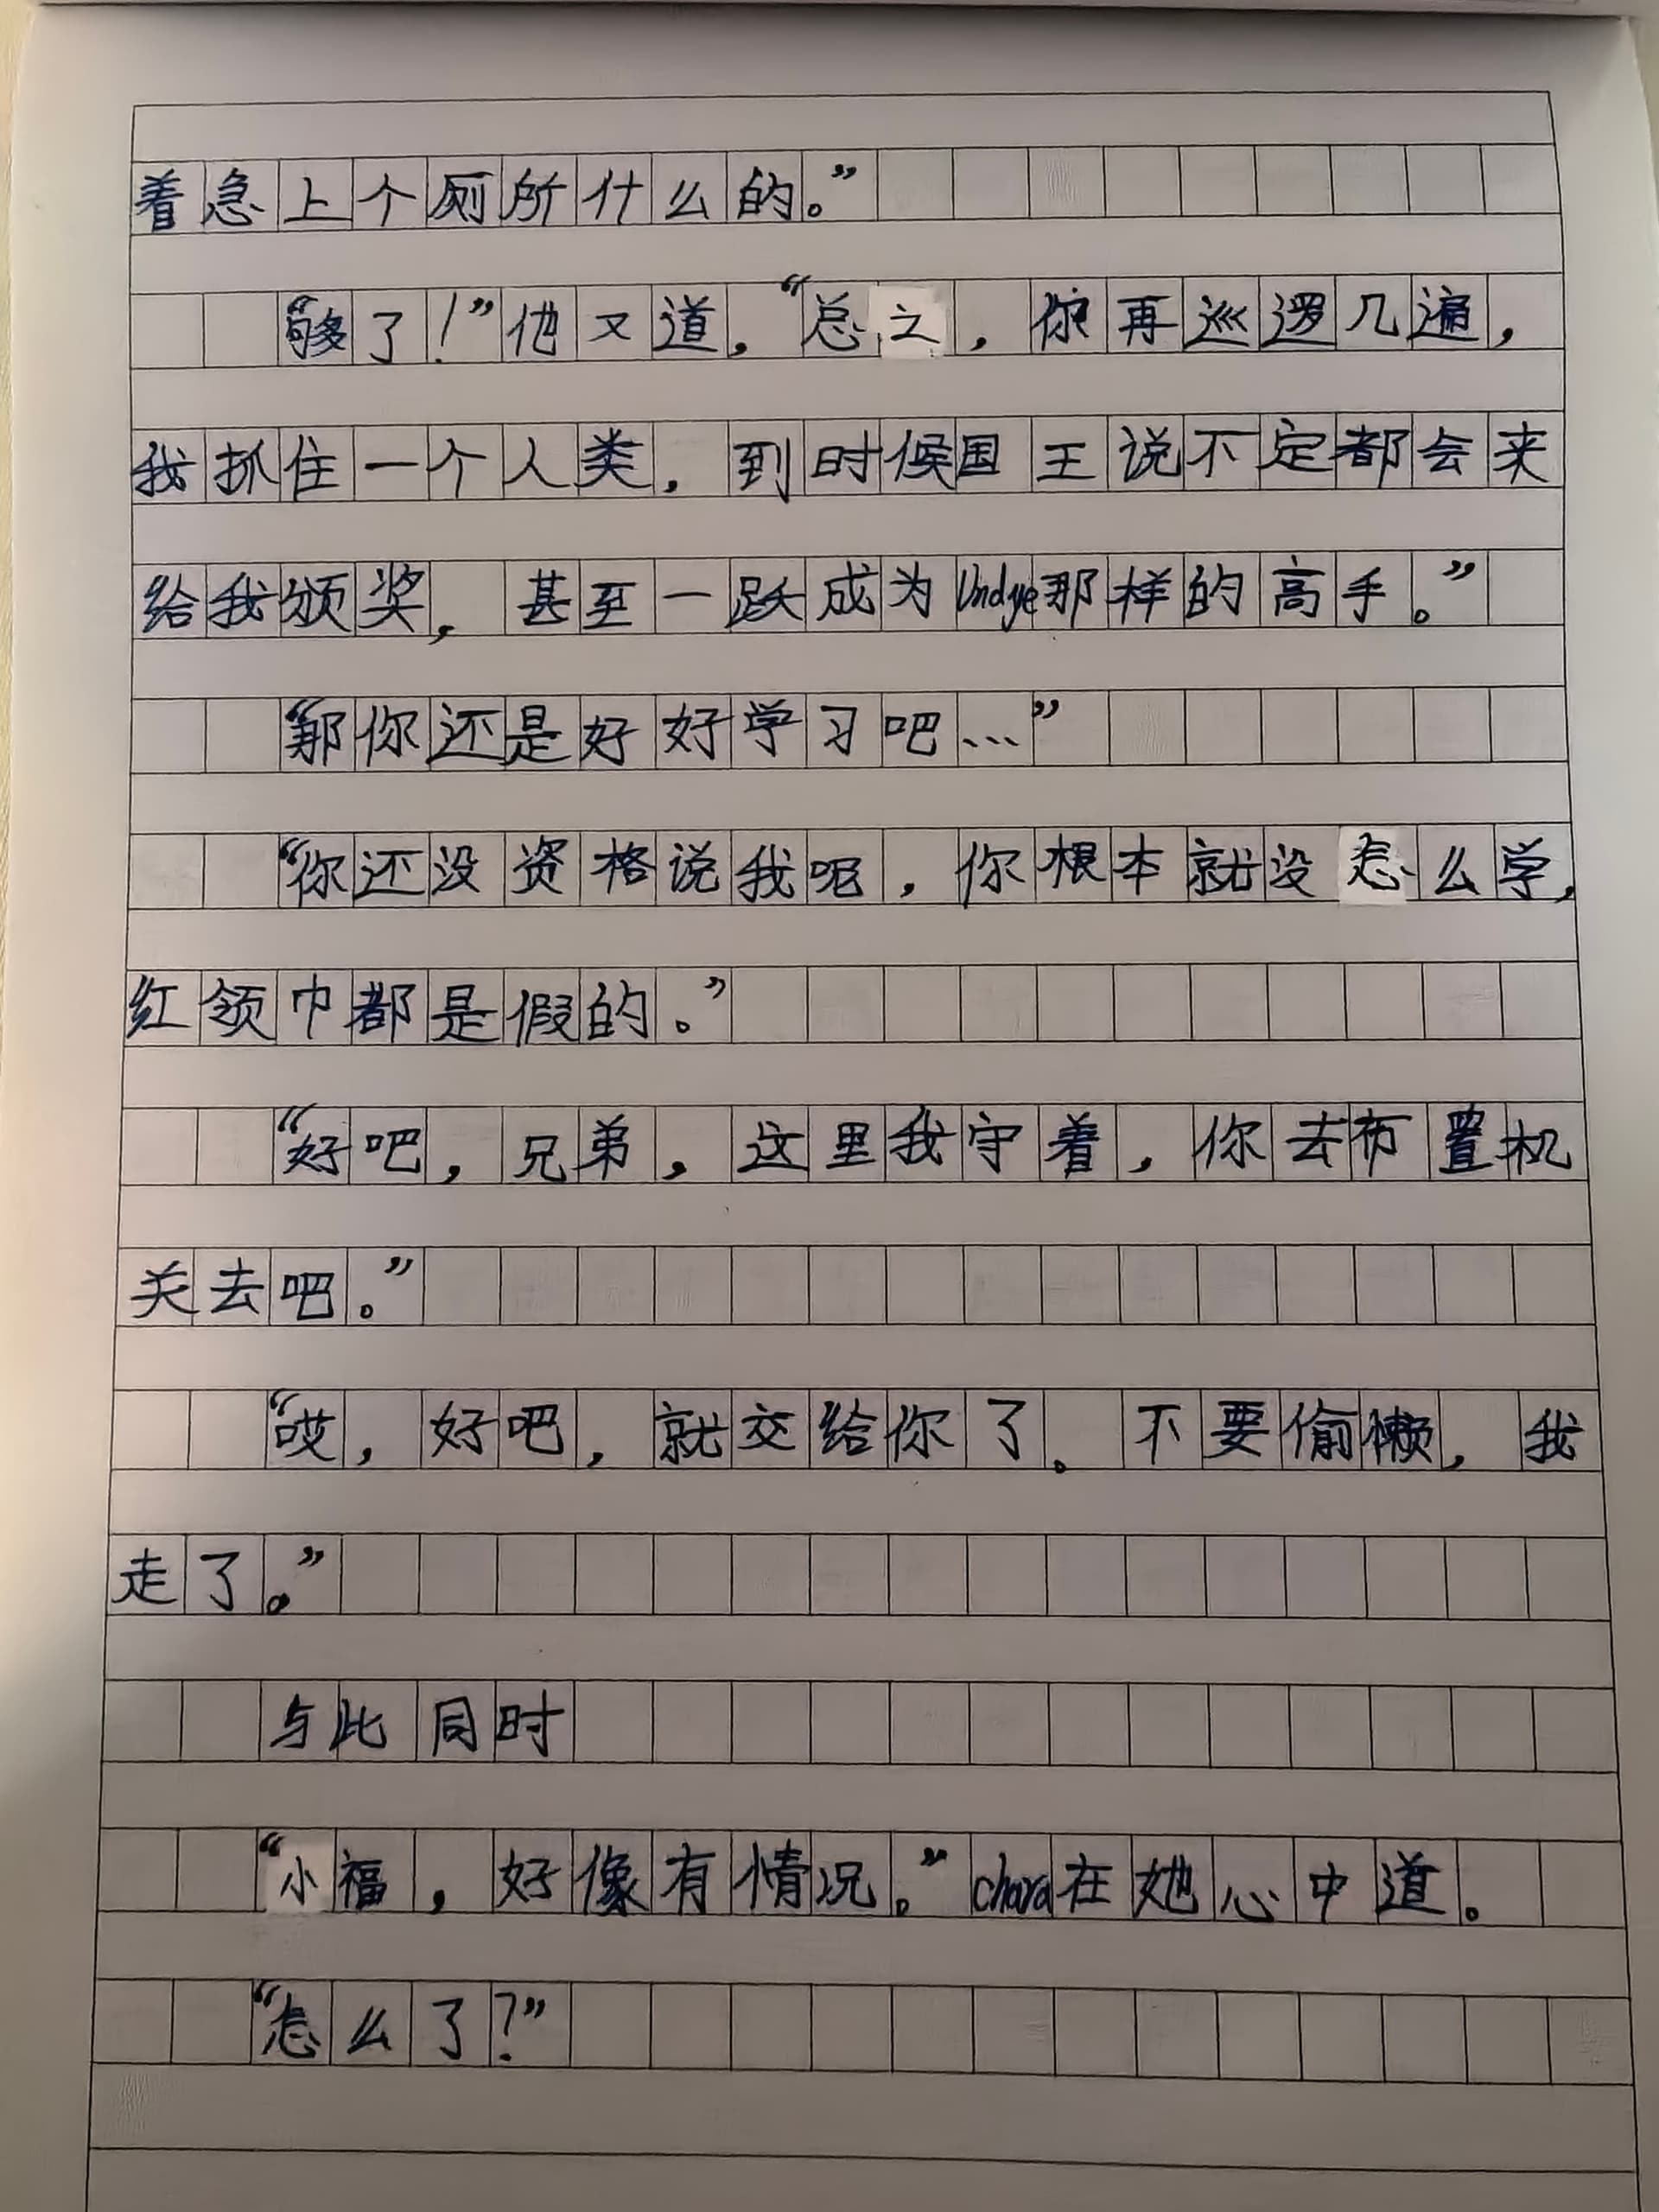 着急上个厕所什么的。”
“够了！”他又道，“总之，你再巡逻几遍，
我抓住一个人类，到时候国王说不定都会来
给我颁奖，甚至一跃成为Undye那样的高手。”
“那你还是好好学习吧…”
“你还没资格说我呢，你根本就没怎么学，
红领巾都是假的。”
“好吧，兄弟，这里我守着，你去布置机
关去吧。”
“哎，好吧，就交给你了。不要偷懒，我
走了。”
与此同时
“小福，好像有情况。”chara在她心中道。
“怎么了？”